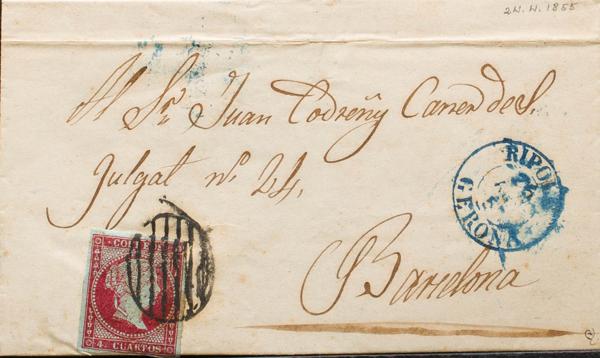 24. 4. 1855
Al Sr. Juan Codreñy Carrer de S.
Julgat nº 24,
Barcelona
RIPOLL
26
GERONA
CORREOS
4 CUARTOS